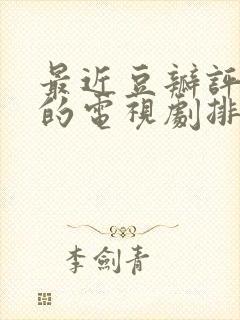 最近豆瓣評
的電視劇排
李劍青